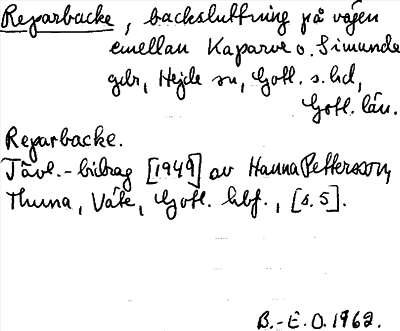 Reparbacke, backsluttning på vägen
emellan Kaparve o. Simunde
gdr, Hejde sn, Gotl. s. hd,
Gotl. län.
Reparbacke.
Tävl.-bidrag [1949] av Hanna Pettersson,
Thuna, Väte, Gotl. hbf., [s. 5].
B.-E.O. 1962.